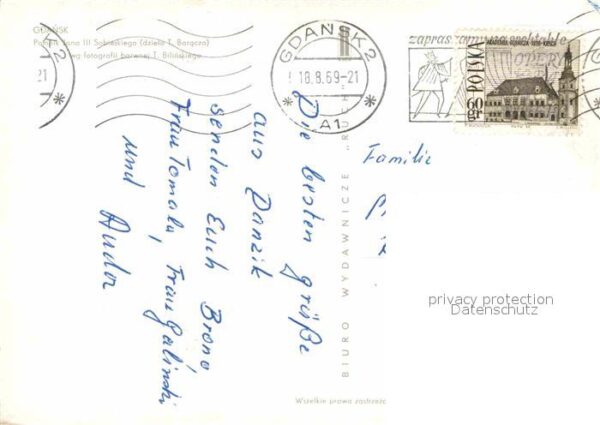 GDAŃSK
Pomnik Jana III Sobieskiego (dzieło T. Barącza)
wa fotografii barwnej T. Bilińskiego
GDAŃSK 2
18.8.69-21
* A1 *
2
21
*
zapraszamy na spektakle
OPERY
POLSKA
60 gr
Die besten grüße
aus Danzik
senden Euch Brono
Frau Tomala, Frau Galinski
und Audor
Familie
BIURO WYDAWNICZE „RUCH"
Wszelkie prawa zastrzeż
privacy protection
Datenschutz